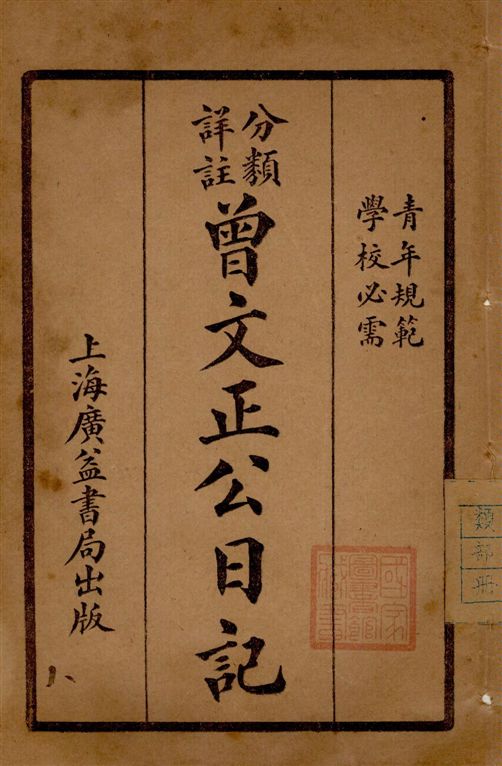 青年規範
學校必需
分類
詳註
曾文正公日記
上海廣益書局出版
國家
圖書館
藏書
類
部
冊